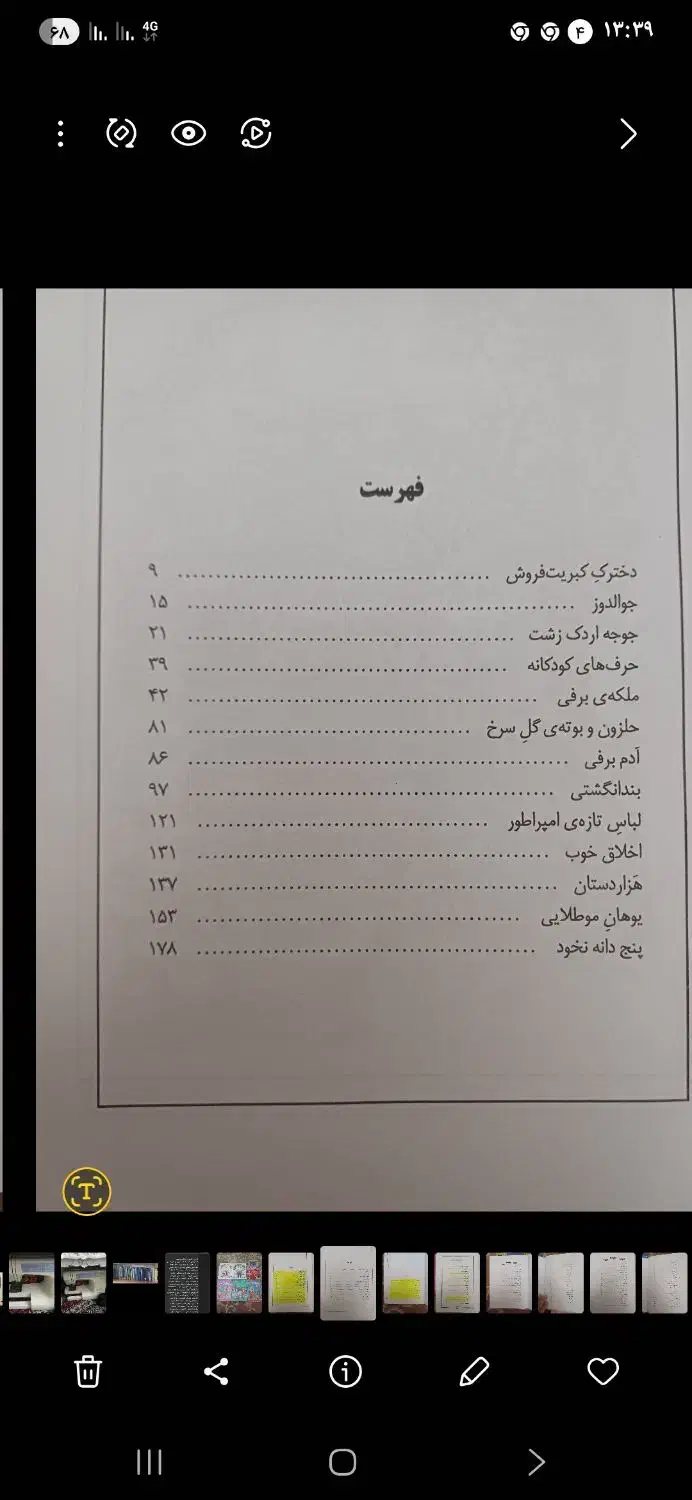 ۱۳:۳۹
۴
4G
۶۸
فهرست
دخترکِ کبریت‌فروش ........................................ ۹
جوالدوز .................................................. ۱۵
جوجه اردک زشت .......................................... ۲۱
حرف‌های کودکانه ......................................... ۳۹
ملکه‌ی برفی ............................................. ۴۲
حلزون و بوته‌ی گلِ سرخ .................................... ۸۱
آدم برفی ................................................. ۸۶
بندانگشتی ............................................... ۹۷
لباسِ تازه‌ی امپراطور ...................................... ۱۲۱
اخلاق خوب .............................................. ۱۳۱
هَزاردستان ............................................... ۱۳۷
یوهانِ موطلایی .......................................... ۱۵۳
پنج دانه نخود ............................................ ۱۷۸
T